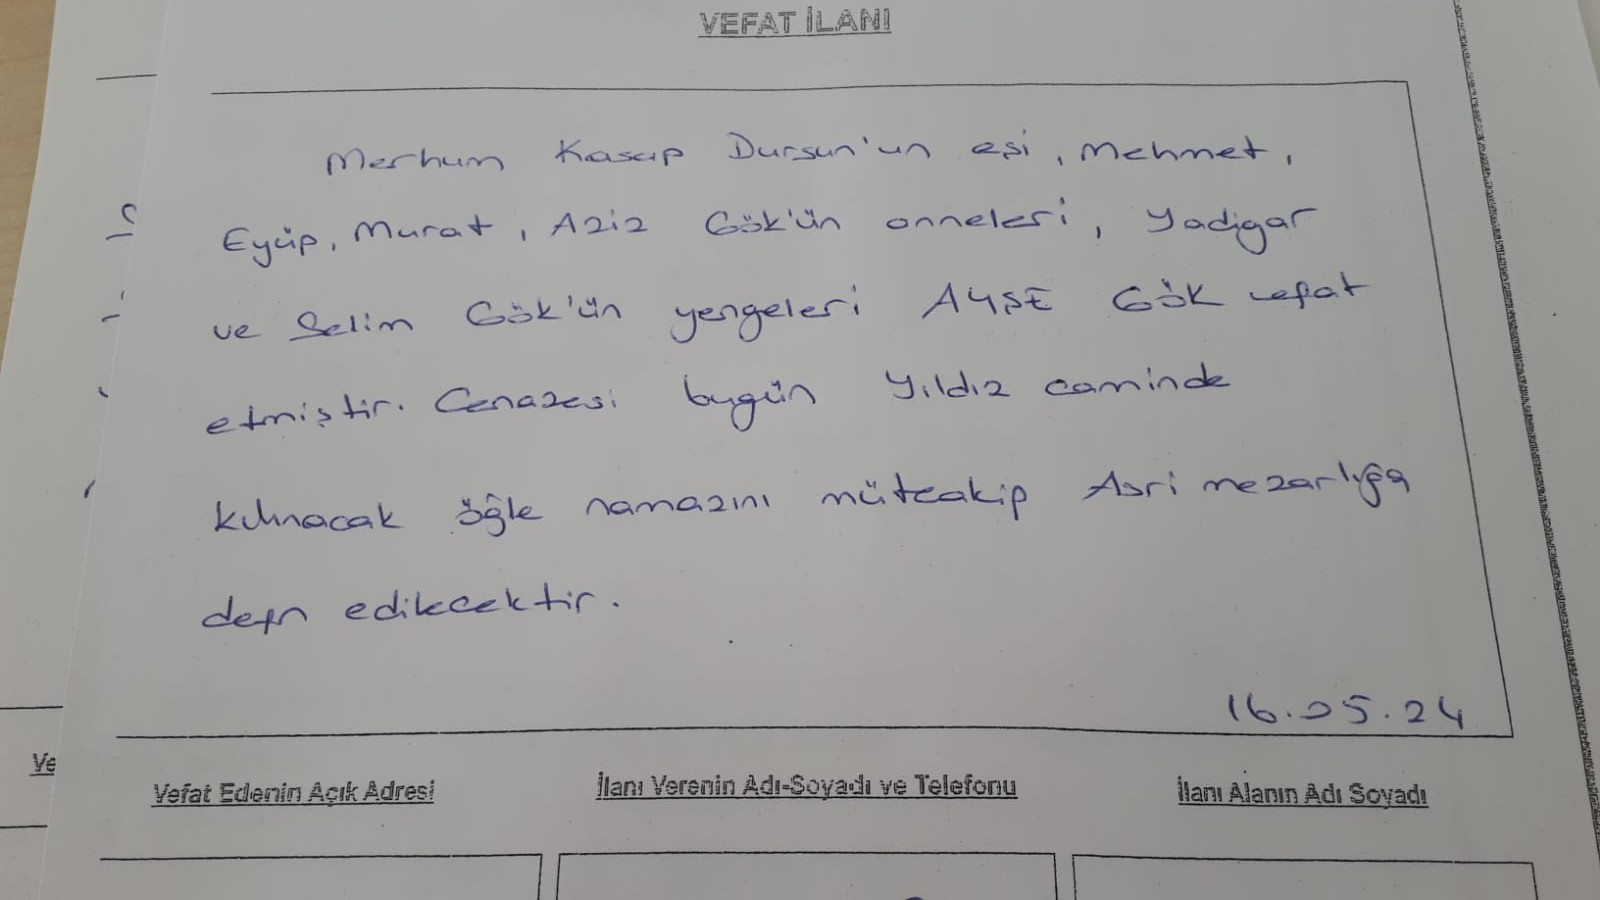 VEFAT İLANI
Merhum Kasap Dursun'un eşi, Mehmet,
Eyüp, Murat, Aziz Gök'ün anneleri, Yadigar
ve Selim Gök'ün yengeleri AYŞE GÖK vefat
etmiştir. Cenazesi bugün Yıldız caminde
kılınacak öğle namazını müteakip Asri mezarlığa
defn edilecektir.
16.05.24
Ve
Vefat Edenin Açık Adresi
İlanı Verenin Adı-Soyadı ve Telefonu
İlanı Alanın Adı Soyadı